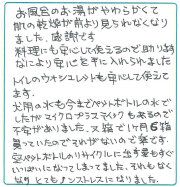 お風呂のお湯がやわらかくて
肌の乾燥が前より見られなくなり
ました。感謝です
料理にも安心して使えるので助かります
なにより安心を手に入れられました
トイレのウォシュレットも安心して使えて
ます。
犬用の水も今までペットボトルの水でした
したがマイクロプラスマイクもあるので
不安がありました。又箱で1ヶ月6箱
買っていたのでそれがないので楽です。
空ペットボトルのリサイクルに出す量もすぐ
いっぱいになってしまってました。それもなく
なり とてもノンストレスになりました。